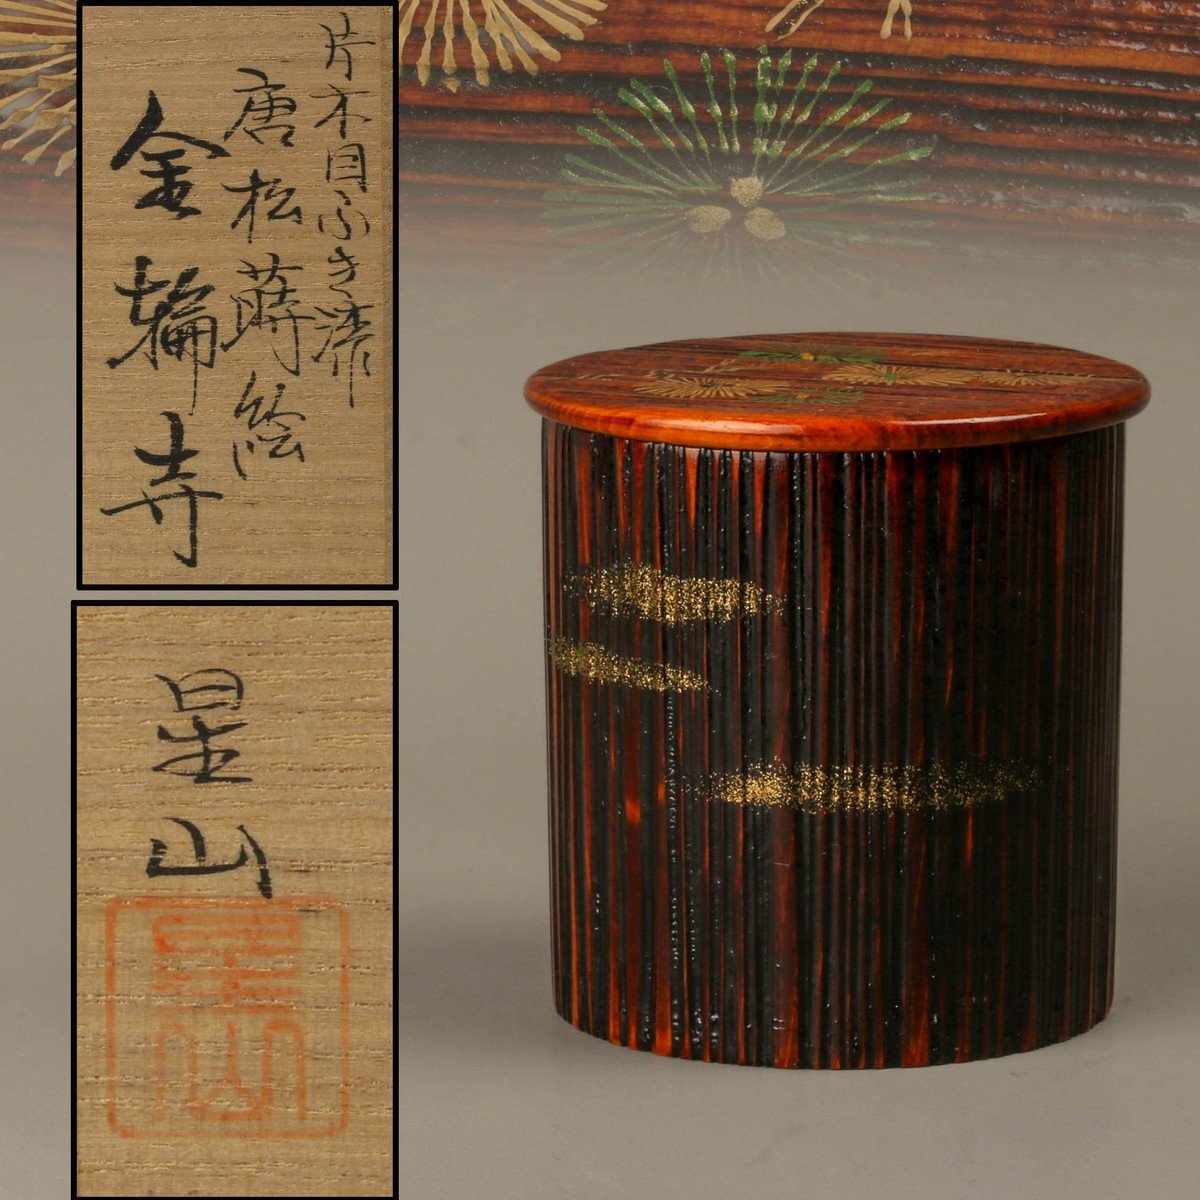 片木目ふき漆
唐松蒔絵
金輪寺
星山